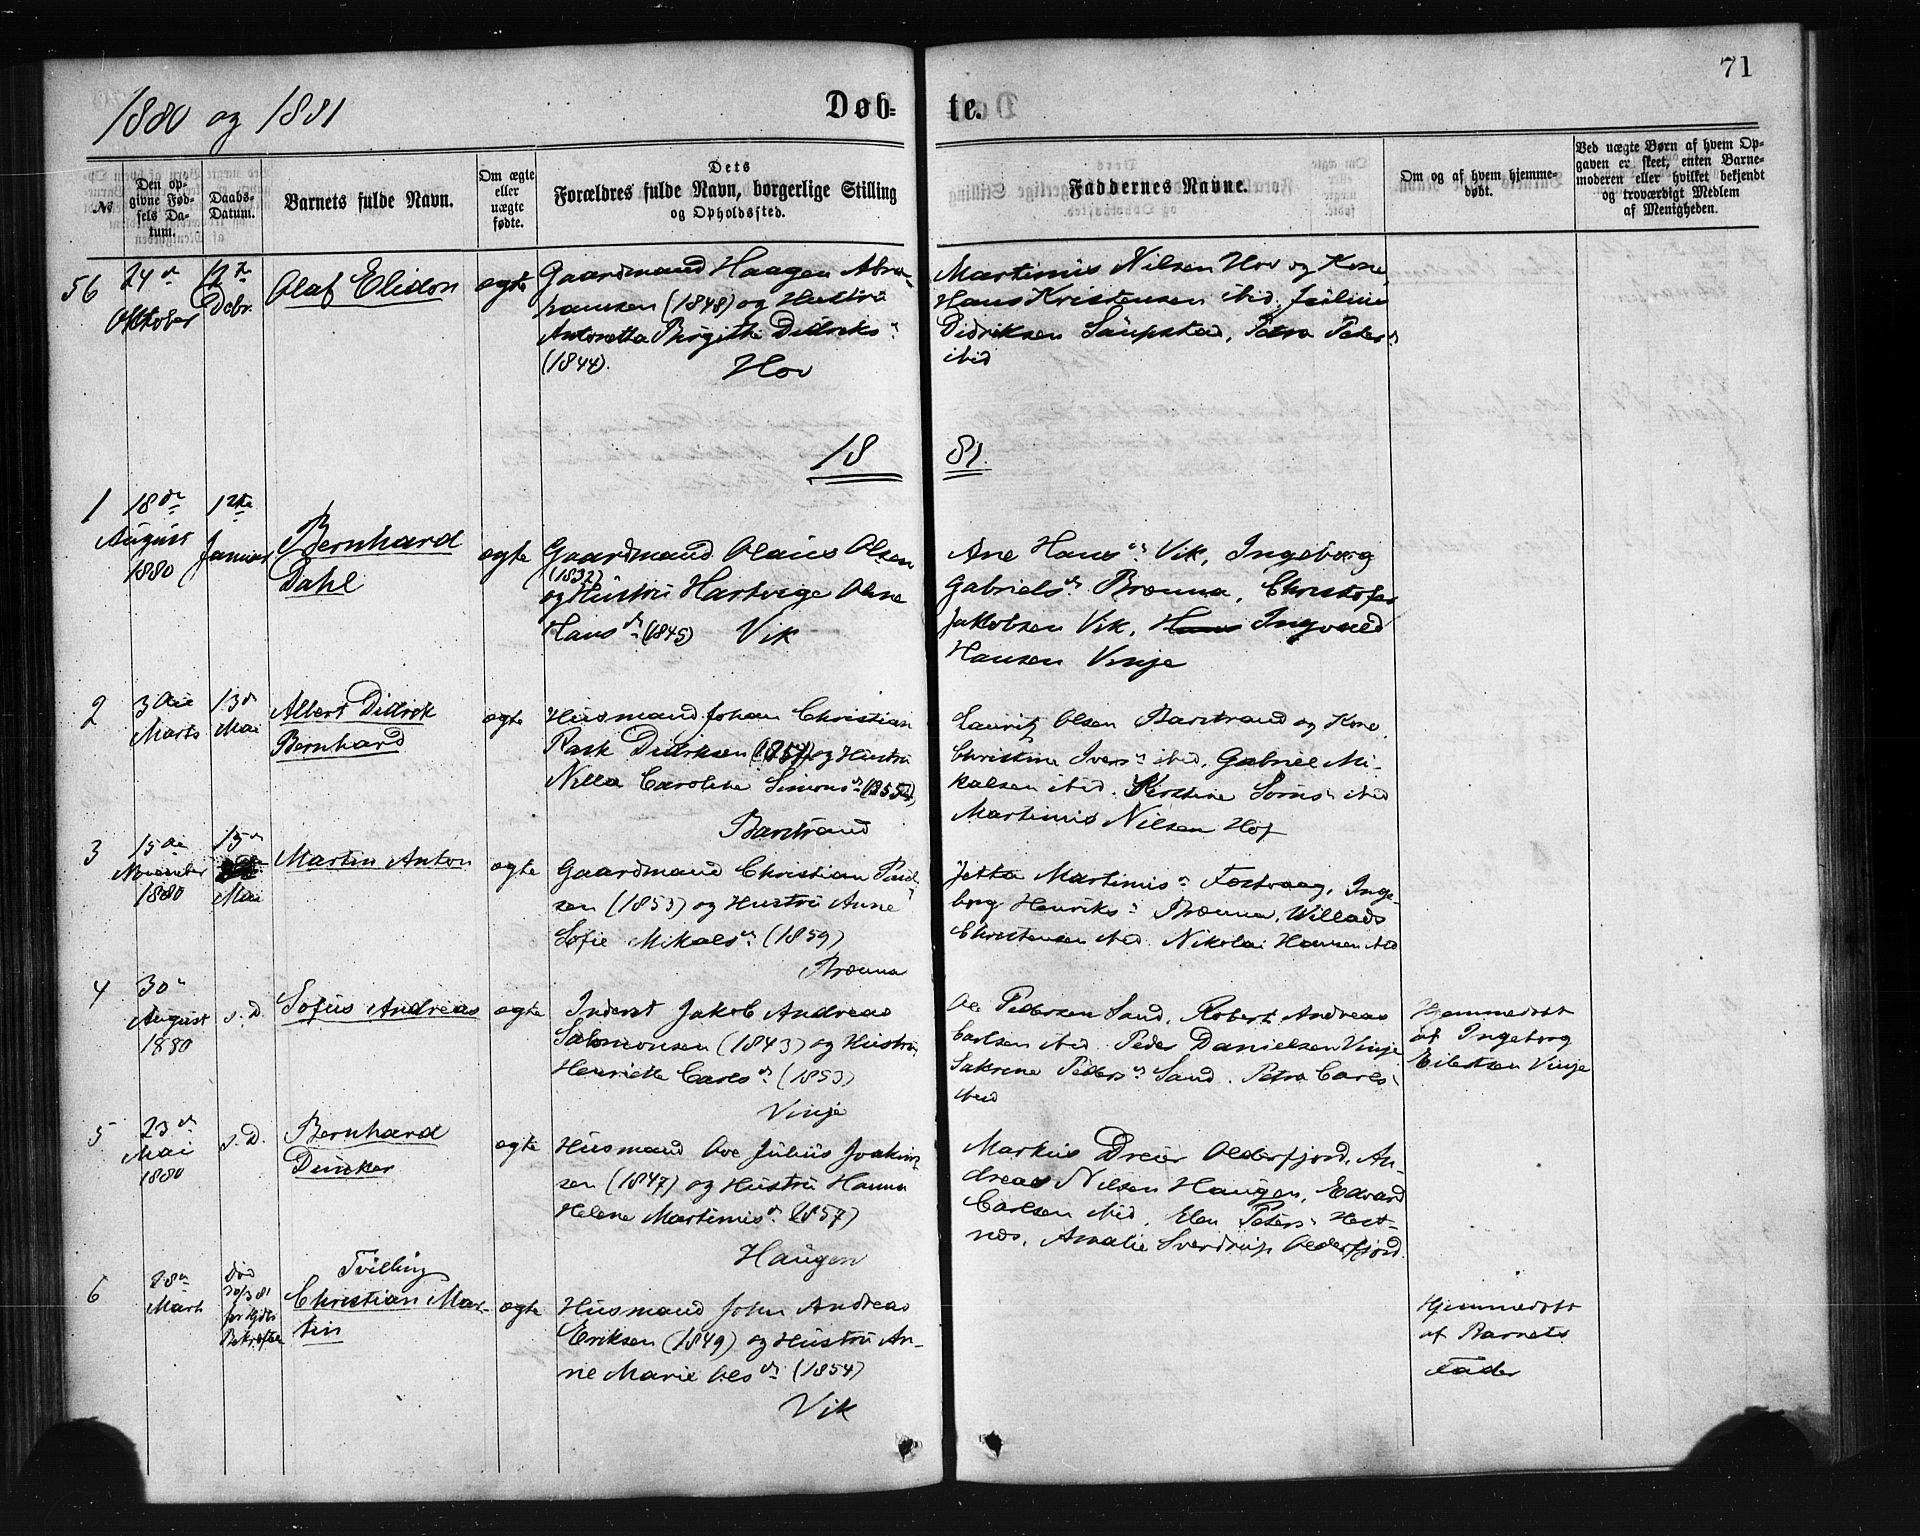 71
1880 og 1881
Døb-
te.
№
Den op-
givne Fød-
sels Da-
tum.
Daabs-
Datum.
Barnets fulde Navn.
Om ægte
eller
uægte
fødte.
Dets
Forældres fulde Navn, borgerlige Stilling
og Opholdssted.
Faddernes Navne.
Om og af hvem hjemme-
døbt.
Ved uægte Børn af hvem Op-
gaven er skeet, enten Barne-
moderen eller hvilket bekjendt
og troværdigt Medlem
af Menigheden.
56
24de
Oktober
12te
Debr.
Olaf Elidon
ægte
Gaardmand Haagen Abra-
hamsen (1848) og Hustru
Antonetta Birgitte Didriks
(1844).
Hov
Martinus Nilsen Hov og Kone,
Hans Kristensen ibid. Julius
Didriksen Saupstad, Petra Peters
ibid
18
81.
1
18de
August
1880
12te
Januar
Bernhard
Dahl
ægte
Gaardmand Olaus Olsen
(1832)
og Hustru Hartvige Oline
Hans dr (1845) Vik
Ane Hans dr Vik, Ingeborg
Gabriels dr Brænna, Christofer
Jakobsen Vik, Hans Ingvald
Hansen Vinje
2
3die
Marts
13de
Mai
Albert Didrik
Bernhard
ægte
Husmand Johan Christian
Rask Didriksen (1857) og Hustru
Nilla Caroline Simons dr (1855)
Barstrand
Lauritz Olsen Barstrand og Kone
Christine Ivers ibid, Gabriel Mi-
kalsen ibid. Kirstine Sørens ibid
Martinus Nilsen Hof
3
15de
November
1880
15de
Mai
Martin Anton
ægte
Gaardmand Christian Paul-
sen (1853) og Hustru Anne
Sofie Mikals dr (1859)
Brænna
Jetta Martinus dr Forvaag, Inge-
borg Henriks Brænna, Willads
Christensen ibid. Nikolai Hansen ibid
4
30
August
1880
s. D.
Sofus Andreas
ægte
Inderst Jakob Andreas
Salomonsen (1843) og Hustru
Henriette Carls dr (1853)
Vinje
Ole Pedersen Sand, Robert Andreas
Carlsen ibid. Peder Danielsen Vinje
Sakrine Peders dr Sand. Petra Carls
ibid
Hjemmedøbt
af Ingeborg
Eilertsen Vinje
5
23de
Mai
1880
s. D.
Bernhard
Duncker
ægte
Husmand Ove Julius Joakim-
sen (1847) og Hustru Hanna
Helene Martinus dr (1857)
Haugen
Markus Dreier Olderfjord, An-
dreas Nilsen Haugen, Edvard
Carlsen ibid, Elen Peters Hest-
nes, Amalie Sverdrup Olderfjord.
6
28de
Marts
død
30/3 81
før Kirke
Bekræftelse
Tvilling
Christian Mar-
tin
ægte
Husmand John Andreas
Eriksen (1849) og Hustru An-
ne Marie Ols dr (1854)
Vik
Hjemmedøbt
af Barnets
Fader